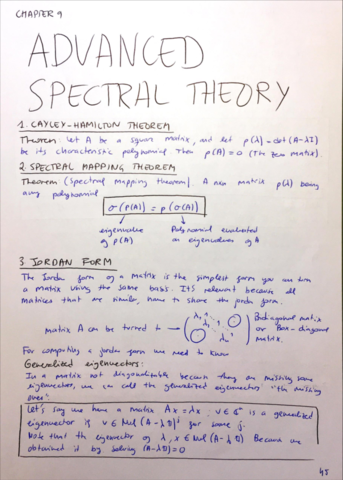 CHAPTER 9
ADVANCED
SPECTRAL THEORY
1. CAYLEY-HAMILTON THEOREM
Theorem: Let A be a square matrix, and let p(λ) = det(A-λI)
be its characteristic polynomial. Then p(A)=0 (The zero matrix)
2 SPECTRAL MAPPING THEOREM
Theorem (Spectral mapping theorem). A nxn matrix p(λ) being
any polynomial
σ(p(A)) = p(σ(A))
eigenvalue of p(A)
Polynomial evaluated in eigenvalues of A
3 JORDAN FORM
The Jordan form of a matrix is the simplest form you can turn
a matrix using the same basis. It's relevant because all
matrices that are similar, have to share the jordan form.
matrix A can be turned to
Bidiagonal matrix
or Box-diagonal
matrix.
For computing a jordan form we need to know
Generalized eigenvectors:
In a matrix not diagonalizable because they are missing some
eigenvectors, we can call the generalized eigenvectors "the missing
ones".
Let's say we have a matrix Ax = λx. v ∈ ℂⁿ is a generalized
eigenvector if v ∈ Nul (A-λI)ʲ for some j.
Note that the eigenvector of λ, x ∈ Nul (A-λI) Because are
obtained by solving (A-λI)=0
45